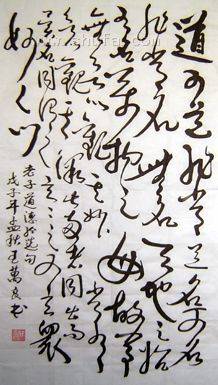 道可道非常道名可名
非常名無名天地之始
有名萬物之母故常
無欲以觀其妙常有
欲以觀其徼此兩者同出而
異名同謂之玄玄之又玄眾
妙之門
老子道德經选句
戊子年孟秋 萬良书